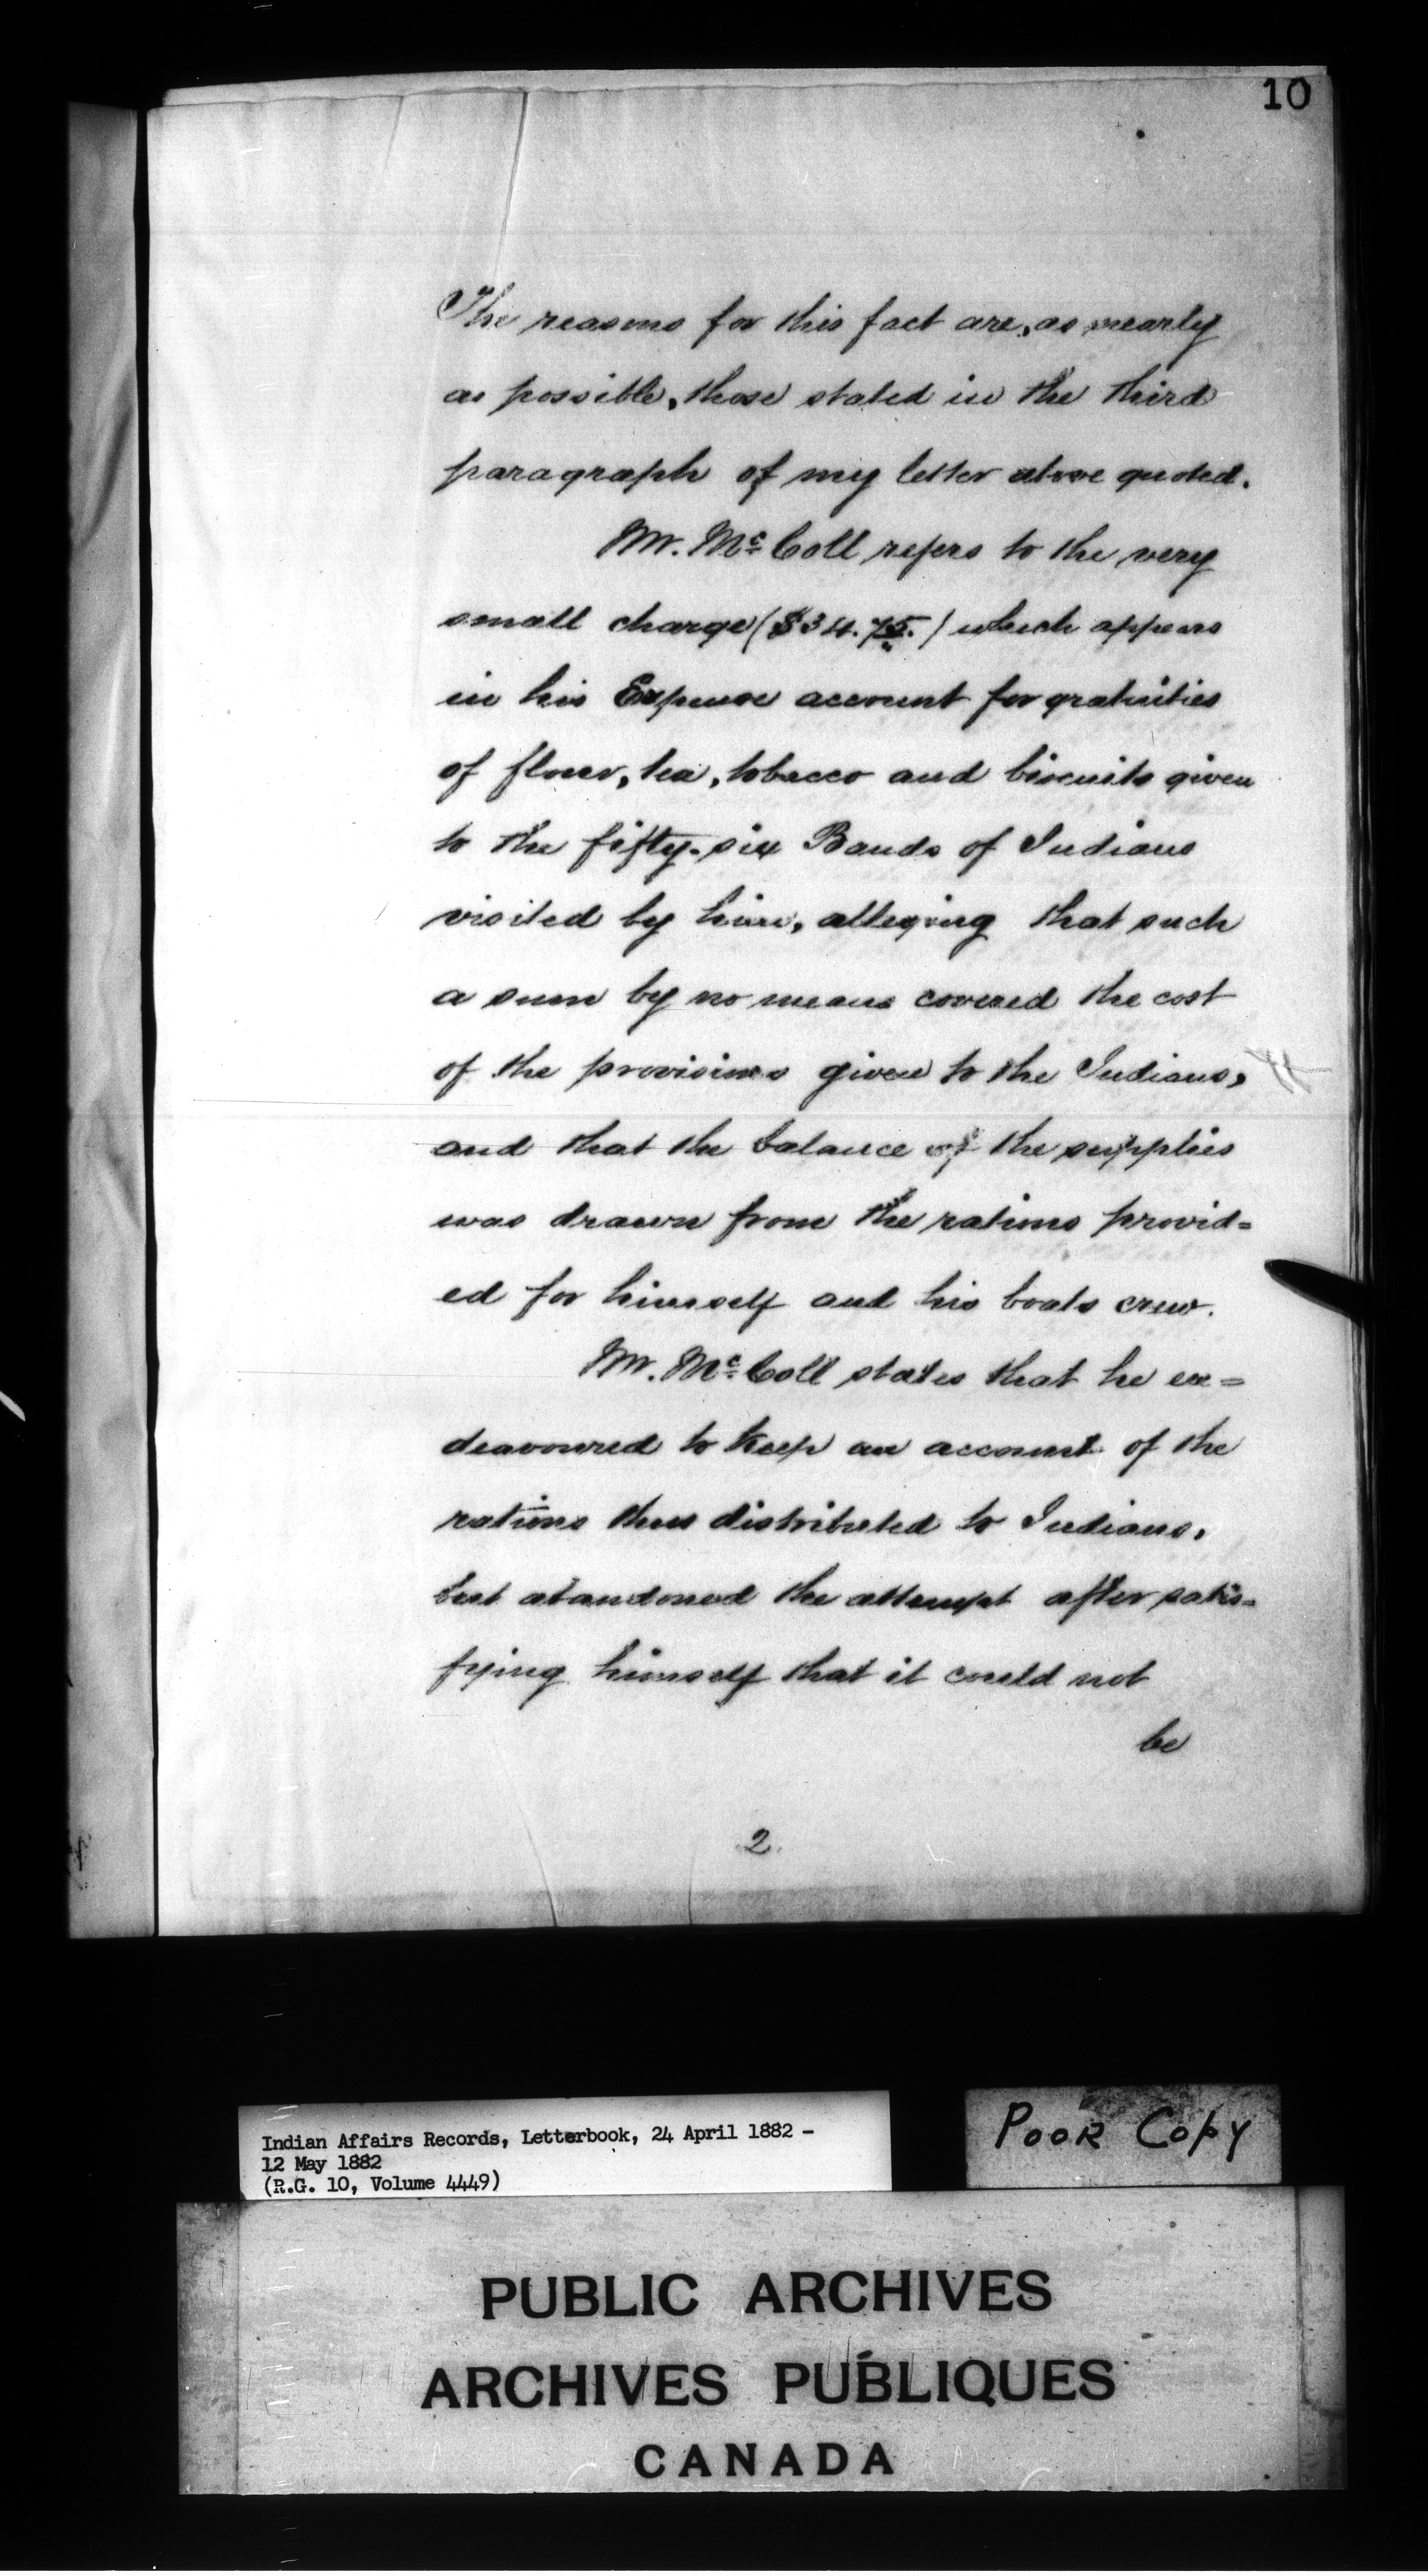 10
The reasons for this fact are, as nearly
as possible, those stated in the third
paragraph of my letter above quoted.
Mr. McColl refers to the very
small charge ($34.75.) which appears
in his Expense account for gratuities
of flour, tea, tobacco and biscuits given
to the fifty-six Bands of Indians
visited by him, alleging that such
a sum by no means covered the cost
of the provisions given to the Indians,
and that the balance of the supplies
was drawn from the rations provid=
ed for himself and his boats crew.
Mr. McColl states that he en=
deavoured to keep an account of the
rations thus distributed to Indians,
but abandoned the attempt after satis=
fying himself that it could not
be
2.
Indian Affairs Records, Letterbook, 24 April 1882 -
12 May 1882
(R.G. 10, Volume 4449)
POOR COPY
PUBLIC ARCHIVES
ARCHIVES PUBLIQUES
CANADA